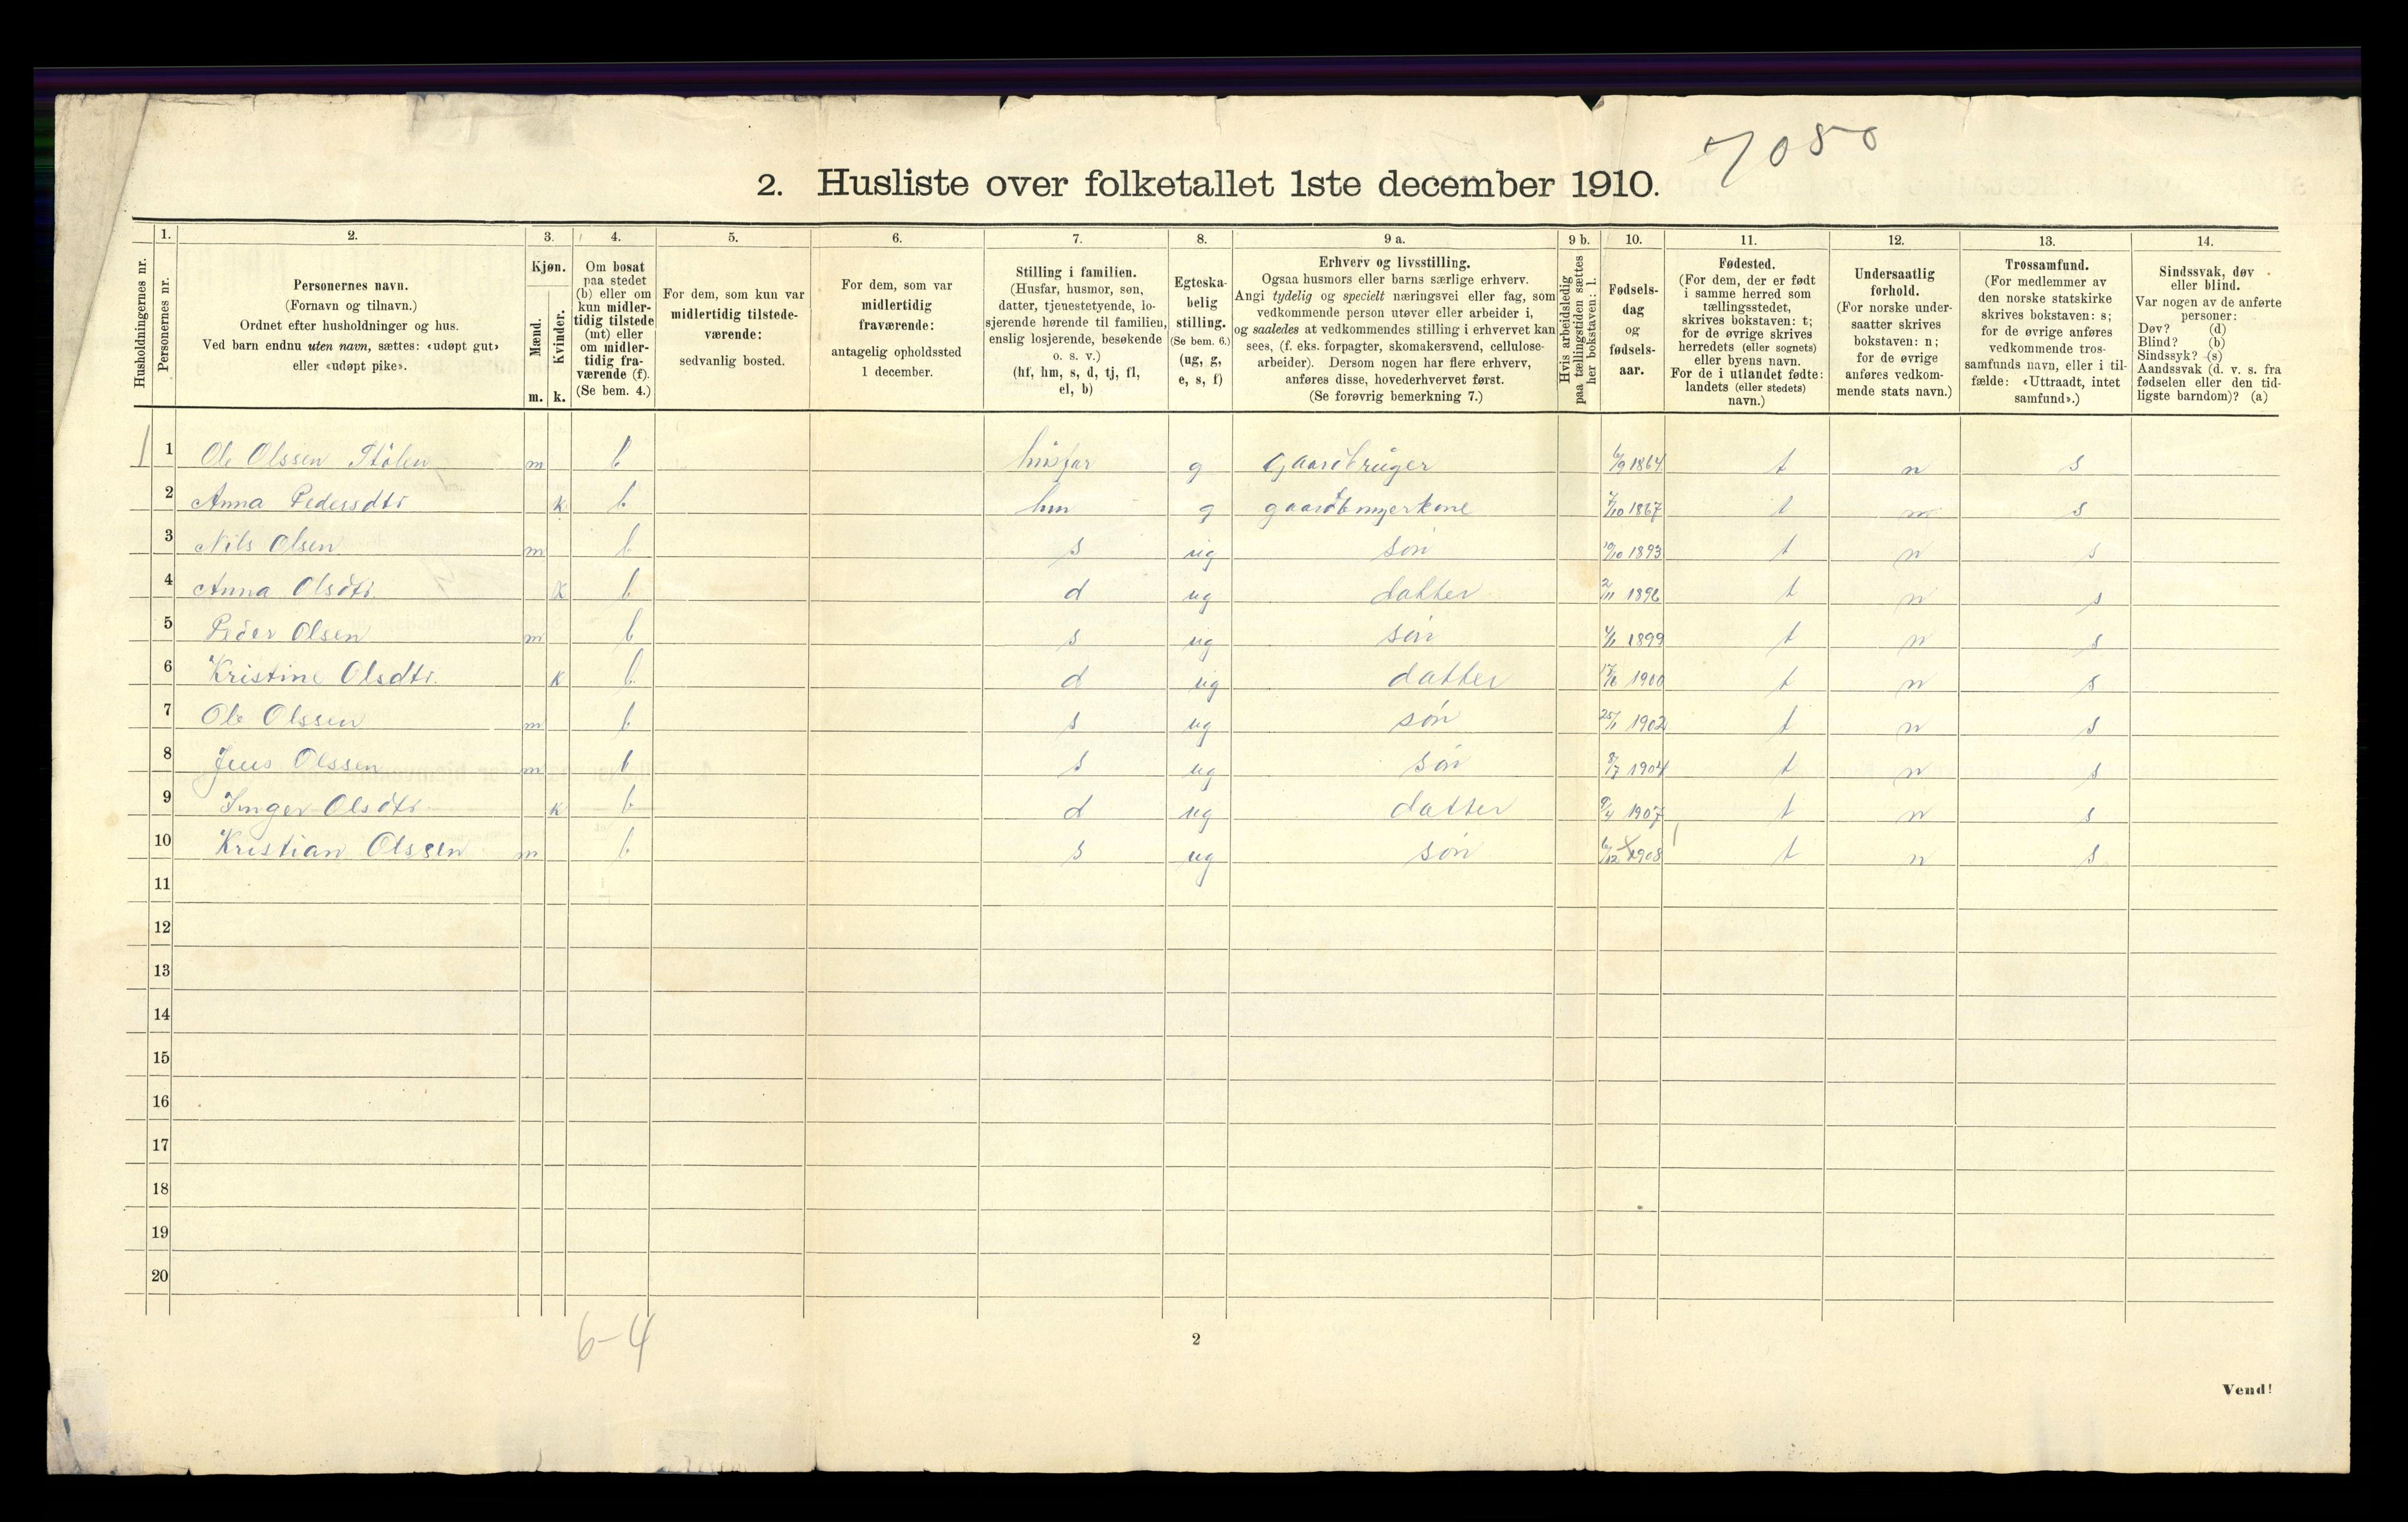 7080
2. Husliste over folketallet 1ste december 1910.
Husholdningernes nr.
1.
Personernes nr.
2.
Personernes navn.
(Fornavn og tilnavn.)
Ordnet efter husholdninger og hus.
Ved barn endnu uten navn, sættes: «udøpt gut»
eller «udøpt pike».
3.
Kjøn.
Mænd.
Kvinder.
m. k.
4.
Om bosat
paa stedet
(b) eller om
kun midler-
tidig tilstede
(mt) eller
om midler-
tidig fra-
værende (f).
(Se bem. 4.)
5.
For dem, som kun var
midlertidig tilstede-
værende:
sedvanlig bosted.
6.
For dem, som var
midlertidig
fraværende:
antagelig opholdssted
1 december.
7.
Stilling i familien.
(Husfar, husmor, søn,
datter, tjenestetyende, lo-
sjerende hørende til familien,
enslig losjerende, besøkende
o. s. v.)
(hf, hm, s, d, tj, fl,
el, b)
8.
Egteska-
belig
stilling.
(Se bem. 6.)
(ug, g,
e, s, f)
9 a.
Erhverv og livsstilling.
Ogsaa husmors eller barns særlige erhverv.
Angi tydelig og specielt næringsvei eller fag, som
vedkommende person utøver eller arbeider i,
og saaledes at vedkommendes stilling i erhvervet kan
sees, (f. eks. forpagter, skomakersvend, cellulose-
arbeider). Dersom nogen har flere erhverv,
anføres disse, hovederhvervet først.
(Se forøvrig bemerkning 7.)
9 b.
Hvis arbeidsledig
paa tællingstiden sættes
her bokstaven: l.
10.
Fødsels-
dag
og
fødsels-
aar.
11.
Fødested.
(For dem, der er født
i samme herred som
tællingsstedet,
skrives bokstaven: t;
for de øvrige skrives
herredets (eller sognets)
eller byens navn.
For de i utlandet fødte:
landets (eller stedets)
navn.)
12.
Undersaatlig
forhold.
(For norske under-
saatter skrives
bokstaven: n;
for de øvrige
anføres vedkom-
mende stats navn.)
13.
Trossamfund.
(For medlemmer av
den norske statskirke
skrives bokstaven: s;
for de øvrige anføres
vedkommende tros-
samfunds navn, eller i til-
fælde: «Uttraadt, intet
samfund».)
14.
Sindssvak, døv
eller blind.
Var nogen av de anførte
personer:
Døv? (d)
Blind? (b)
Sindssyk? (s)
Aandssvak (d. v. s. fra
fødselen eller den tid-
ligste barndom)? (a)
1 1 Ole Olssen Stölen m b husfar g gaardbruger 6/9 1864 t n s
2 Anna Pedersdtr k b hm g 7/10 1867 t n s
3 Nils Olsen m b s ug søn 19/10 1893 t n s
4 Anna Olsdtr. k b d ug datter 2/11 1896 t n s
5 Peder Olsen m b s ug søn 1899 t n s
6 Kristine Olsdtr. k b d ug datter 17/6 1900 t n s
7 Ole Olssen m b s ug søn 25/1 1902 t n s
8 Jens Olssen m b s ug søn 8/7 1904 t n s
9 Inger Olsdtr k b d ug datter 9/4 1907 t n s
10 Kristian Olssen m b s ug søn 6/12 1908 t n s
11
12
13
14
15
16
17
18
19
20
6-4
2
Vend!